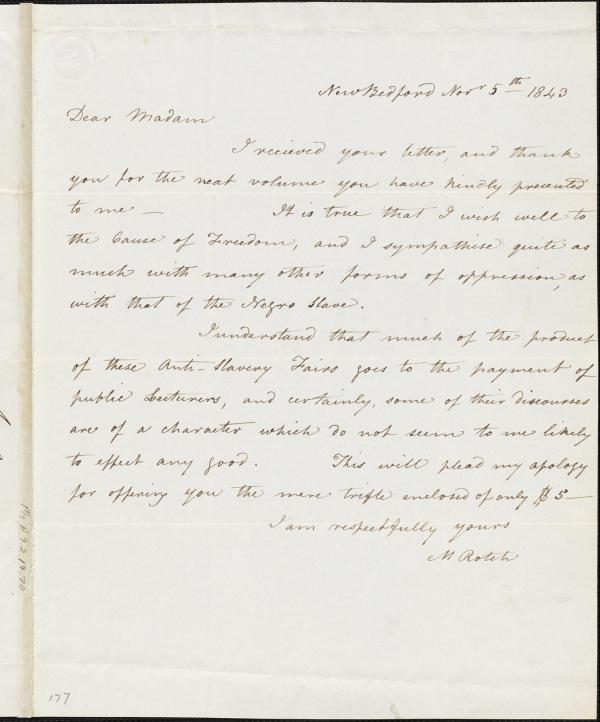 New Bedford Novr 5th 1843
Dear Madam
I recieved your letter, and thank
you for the neat volume you have kindly presented
to me — It is true that I wish well to
the Cause of Freedom, and I sympathise quite as
much with many other forms of oppression, as
with that of the Negro Slave.
I understand that much of the product
of these Anti-Slavery Fairs goes to the payment of
public Lecturers, and certainly, some of their discourses
are of a character which do not seem to me likely
to effect any good. This will plead my apology
for offering you the mere trifle enclosed of only $5—
I am respectfully yours
M Rotch
177